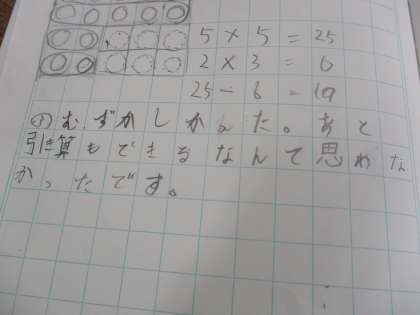 5×5=25
2×3=6
25-6=19
のむずかしかった。あと
引き算もできるなんて思わな
かったです。